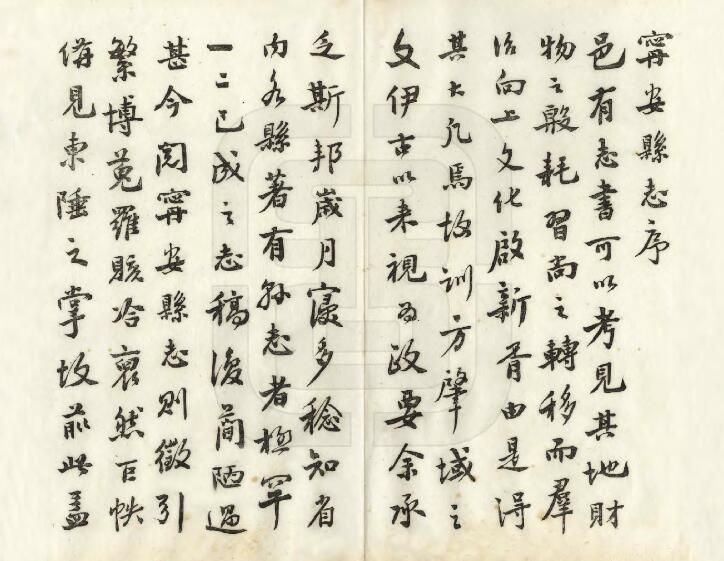 寗安縣志序
邑有志書可以考見其地財
物之殷耗習尚之轉移而羣
治向上文化啟新胥由是得
其大凡焉故訓方肇域之
文伊古以來視為政要余承
乏斯邦歲月寖多稔知省
内各縣著有縣志者極罕
一二已成之志稿復簡陋過
甚今閱寗安縣志則徵引
繁博蒐羅賅洽裒然巨帙
備見東陲之掌故前此蓋